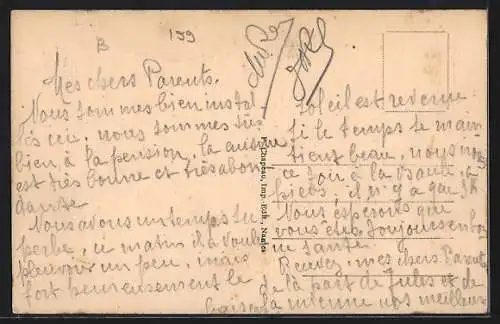 B 159
Mes chers Parents.
Nous sommes bien instal
lés ici, nous sommes très
bien à la pension, la cuisine
est très bonne et très abon
dante
Nous avons un temps su
perbe, ce matin il a voulu
pleuvoir un peu, mais
fort heureusement le
soleil est revenu
si le temps se main
tient beau, nous irons
ce soir à la
pieds. il n'y a que
Nous espérons que
vous êtes toujours en bon
ne santé.
Recevez, mes chers Parents
de la part de Jules et de
la mienne nos meilleurs
baisers
F. Chapeau, Imp.-Edit., Nantes